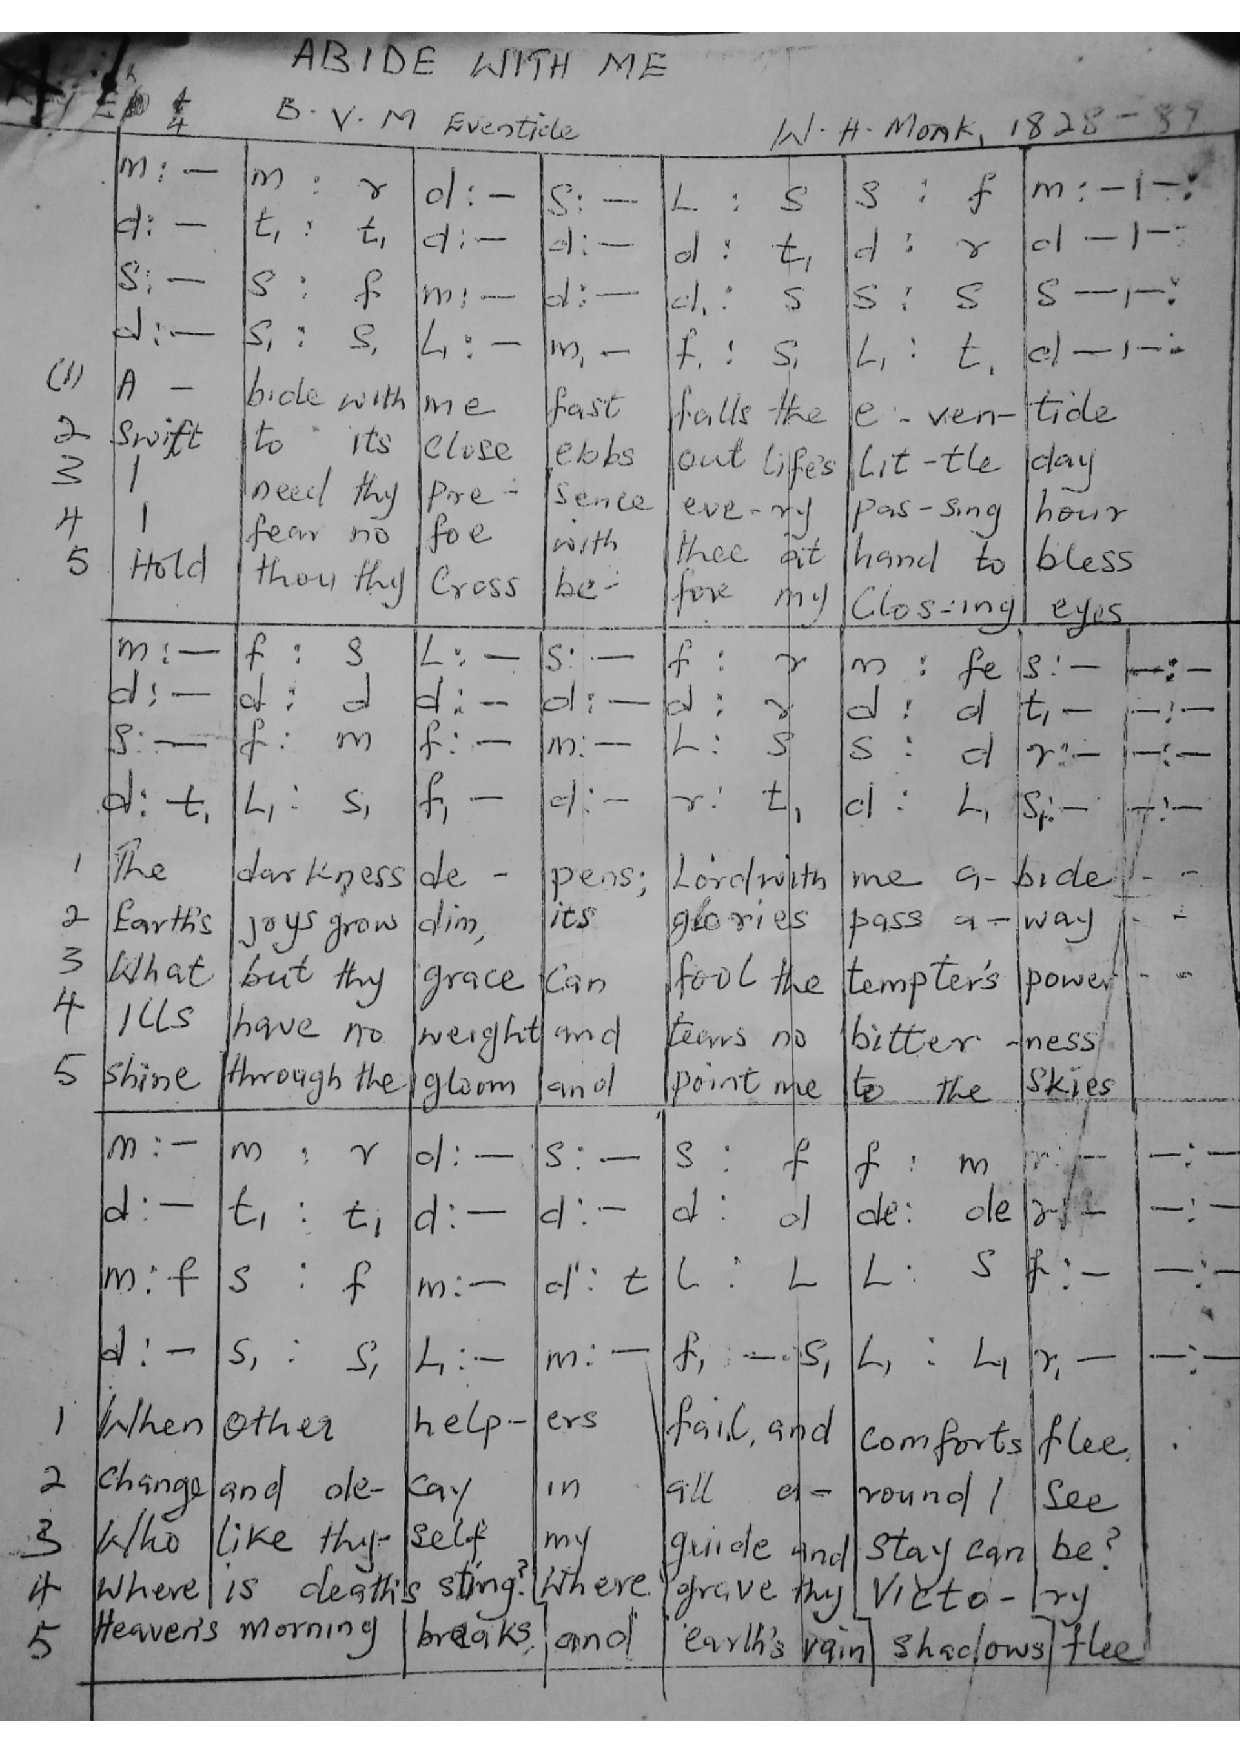 ABIDE WITH ME
4/4 B.V.M Eventide W.H.Monk, 1828-89
m:— m : r d:— s:— L : s s : f m:—1—:
d:— t₁ : t₁ d:— d:— d : t₁ d : r d —1—:
s:— s : f m:— d:— d. : s s : s s —1—:
d:— s₁ : s₁ L₁:— m₁ — f₁ : s₁ L₁ : t₁ d —1—:
(1) A — bide with me fast falls the e - ven- tide
2 Swift to its close ebbs out life's Lit-tle day
3 I need thy pre- sence eve-ry pas-sing hour
4 I fear no foe with thee at hand to bless
5 Hold thou thy Cross be- fore my Clos-ing eyes
m:— f : s L:— s:— f : r m : fe s:— —:—
d:— d : d d:— d:— d : r d : d t₁— —:—
s:— f : m f:— m:— L : s s : d r:— —:—
d: t₁ L₁ : s₁ f₁ — d:— r : t₁ d : L₁ s₁:— —:—
1 The darkness de - pens; Lord with me a- bide - -
2 Earth's joys grow dim, its glories pass a- way - -
3 What but thy grace Can fool the tempter's power - -
4 ILLs have no weight and tears no bitter -ness
5 shine through the gloom and point me to the skies
m:— m : r d:— s:— s : f f : m r:— —:—
d:— t₁ : t₁ d:— d:— d : d de: de r:— —:—
m:f s : f m:— d': t L : L L : s f:— —:—
d:— s₁ : s₁ L₁:— m:— f₁ :—.s₁ L₁ : L₁ r₁ — —:—
1 When other help- ers fail, and comforts flee.
2 change and de- cay in all a- round I see
3 Who like thy- self my guide and stay can be?
4 where is death's sting? Where grave thy victo- ry
5 Heaven's morning breaks, and earth's vain shadows flee